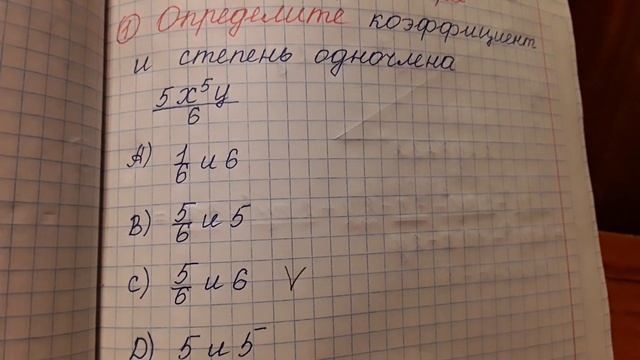 ① Определите коэффициент
и степень одночлена
5x⁵y/6
A) 1/6 и 6
B) 5/6 и 5
C) 5/6 и 6 V
D) 5 и 5